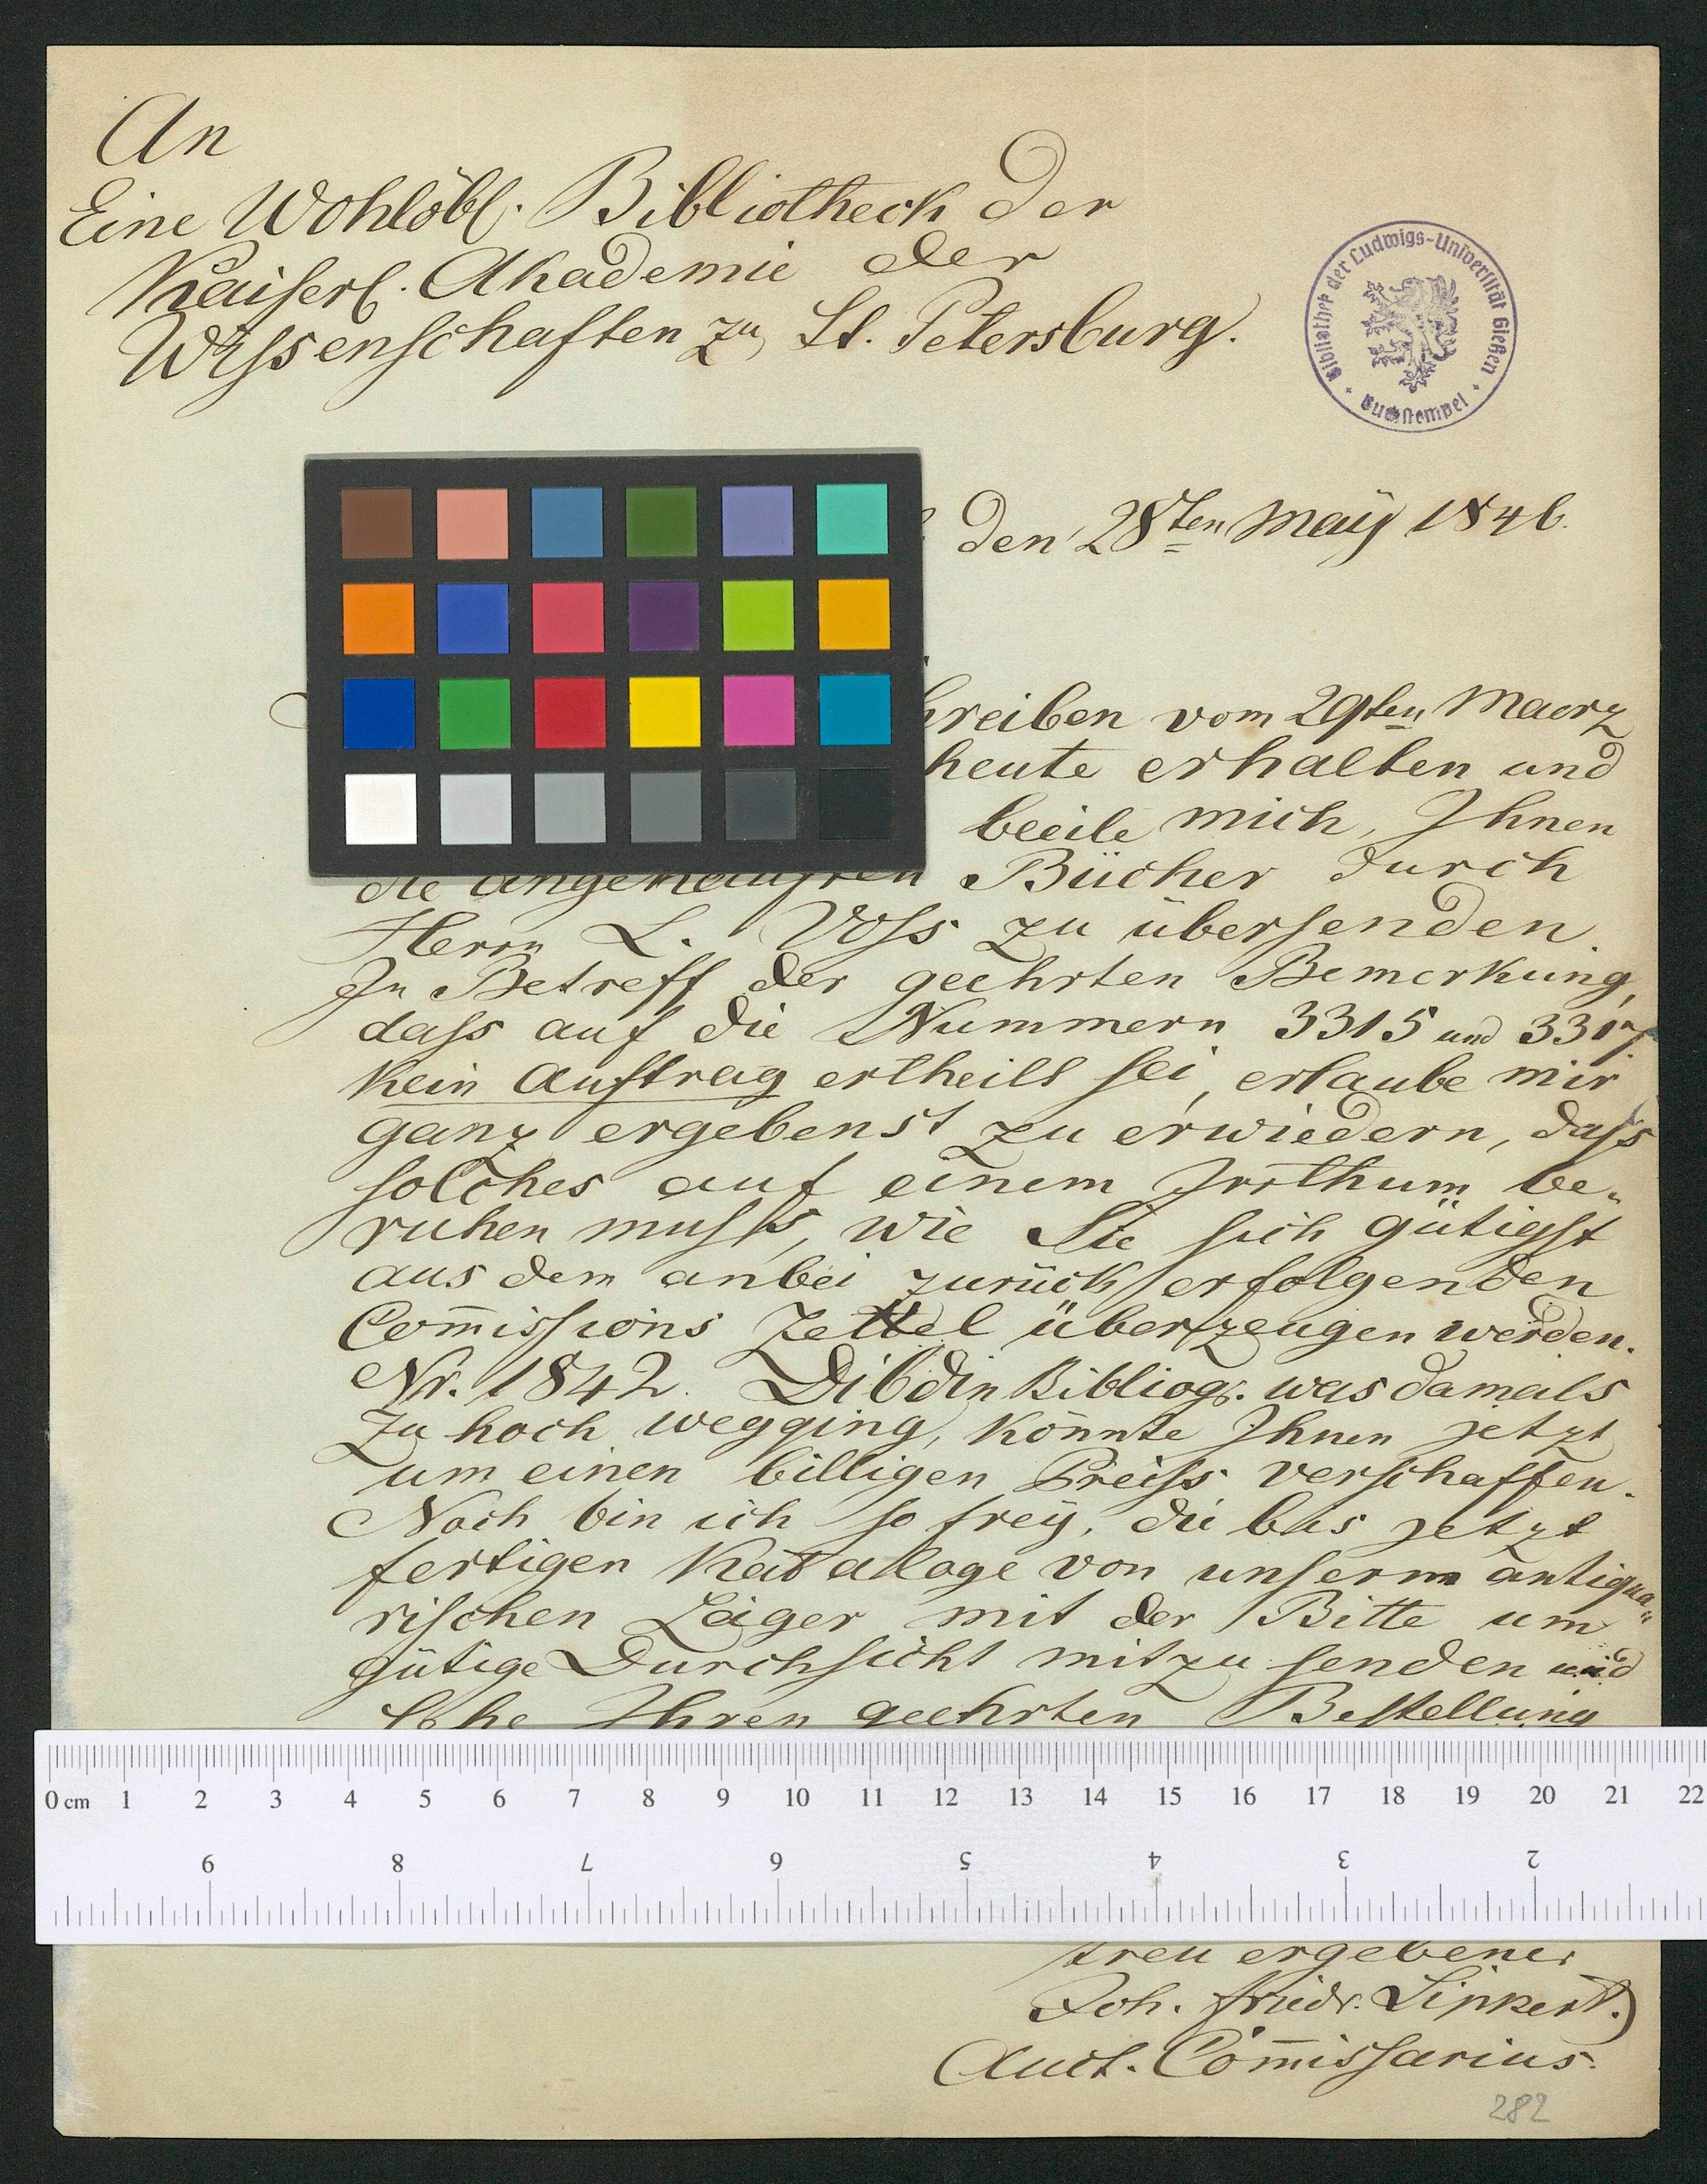 An
Eine Wohlöbl. Bibliotheck der
Kaiserl. Akademie der
Wissenschaften zu St. Petersburg.
Bibliothek der Ludwigs-Universität Gießen
Buchstempel
den 28ten Maÿ 1846.
hreiben vom 29ten Maerz
heute erhalten und
beeile mich, Ihnen
die angekauften Bücher durch
Herrn L. Voss zu übersenden.
In Betreff der geehrten Bemerkung,
dass auf die Nummern 3315 und 3317.
kein Auftrag ertheilt sei, erlaube mir
ganz ergebenst zu erwiedern, dass
solches auf einem Irrthum be-
ruhen muss, wie Sie sich gütigst
aus dem anbei zurück erfolgenden
Com̅issions Zettel überzeugen werden.
Nr. 1842. Dibdin Bibliogr. was damals
zu hoch wegging, könnte Ihnen jetzt
um einen billigen Preiss verschaffen.
Noch bin ich so freÿ, die bis jetzt
fertigen Kataloge von unserm antiqua-
rischen Lager mit der Bitte um
gütige Durchsicht mitzusenden und
sehe Ihren geehrten Bestellung
0 cm 1 2 3 4 5 6 7 8 9 10 11 12 13 14 15 16 17 18 19 20 21 22
9 8 7 6 5 4 3 2
treu ergebener
Joh. Friedr. Lippert.
Auct. Com̅issarius.
282